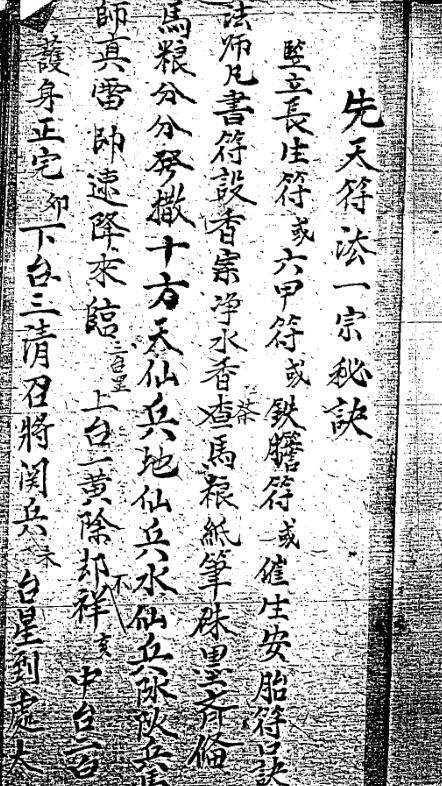 先天符法一宗秘訣
竪立長生符或六甲符或鉄胆符或催生安胎符口訣
法师凡書符設香案净水香茶馬粮紙筆硃墨斉俻
馬粮分分發撒十方天仙兵地仙兵水仙兵隊隊兵馬
師真雷帥遠降來臨三台星上台一黄除却不祥亥中台二白
護身正完卯下台三清召將関兵未台星到處大